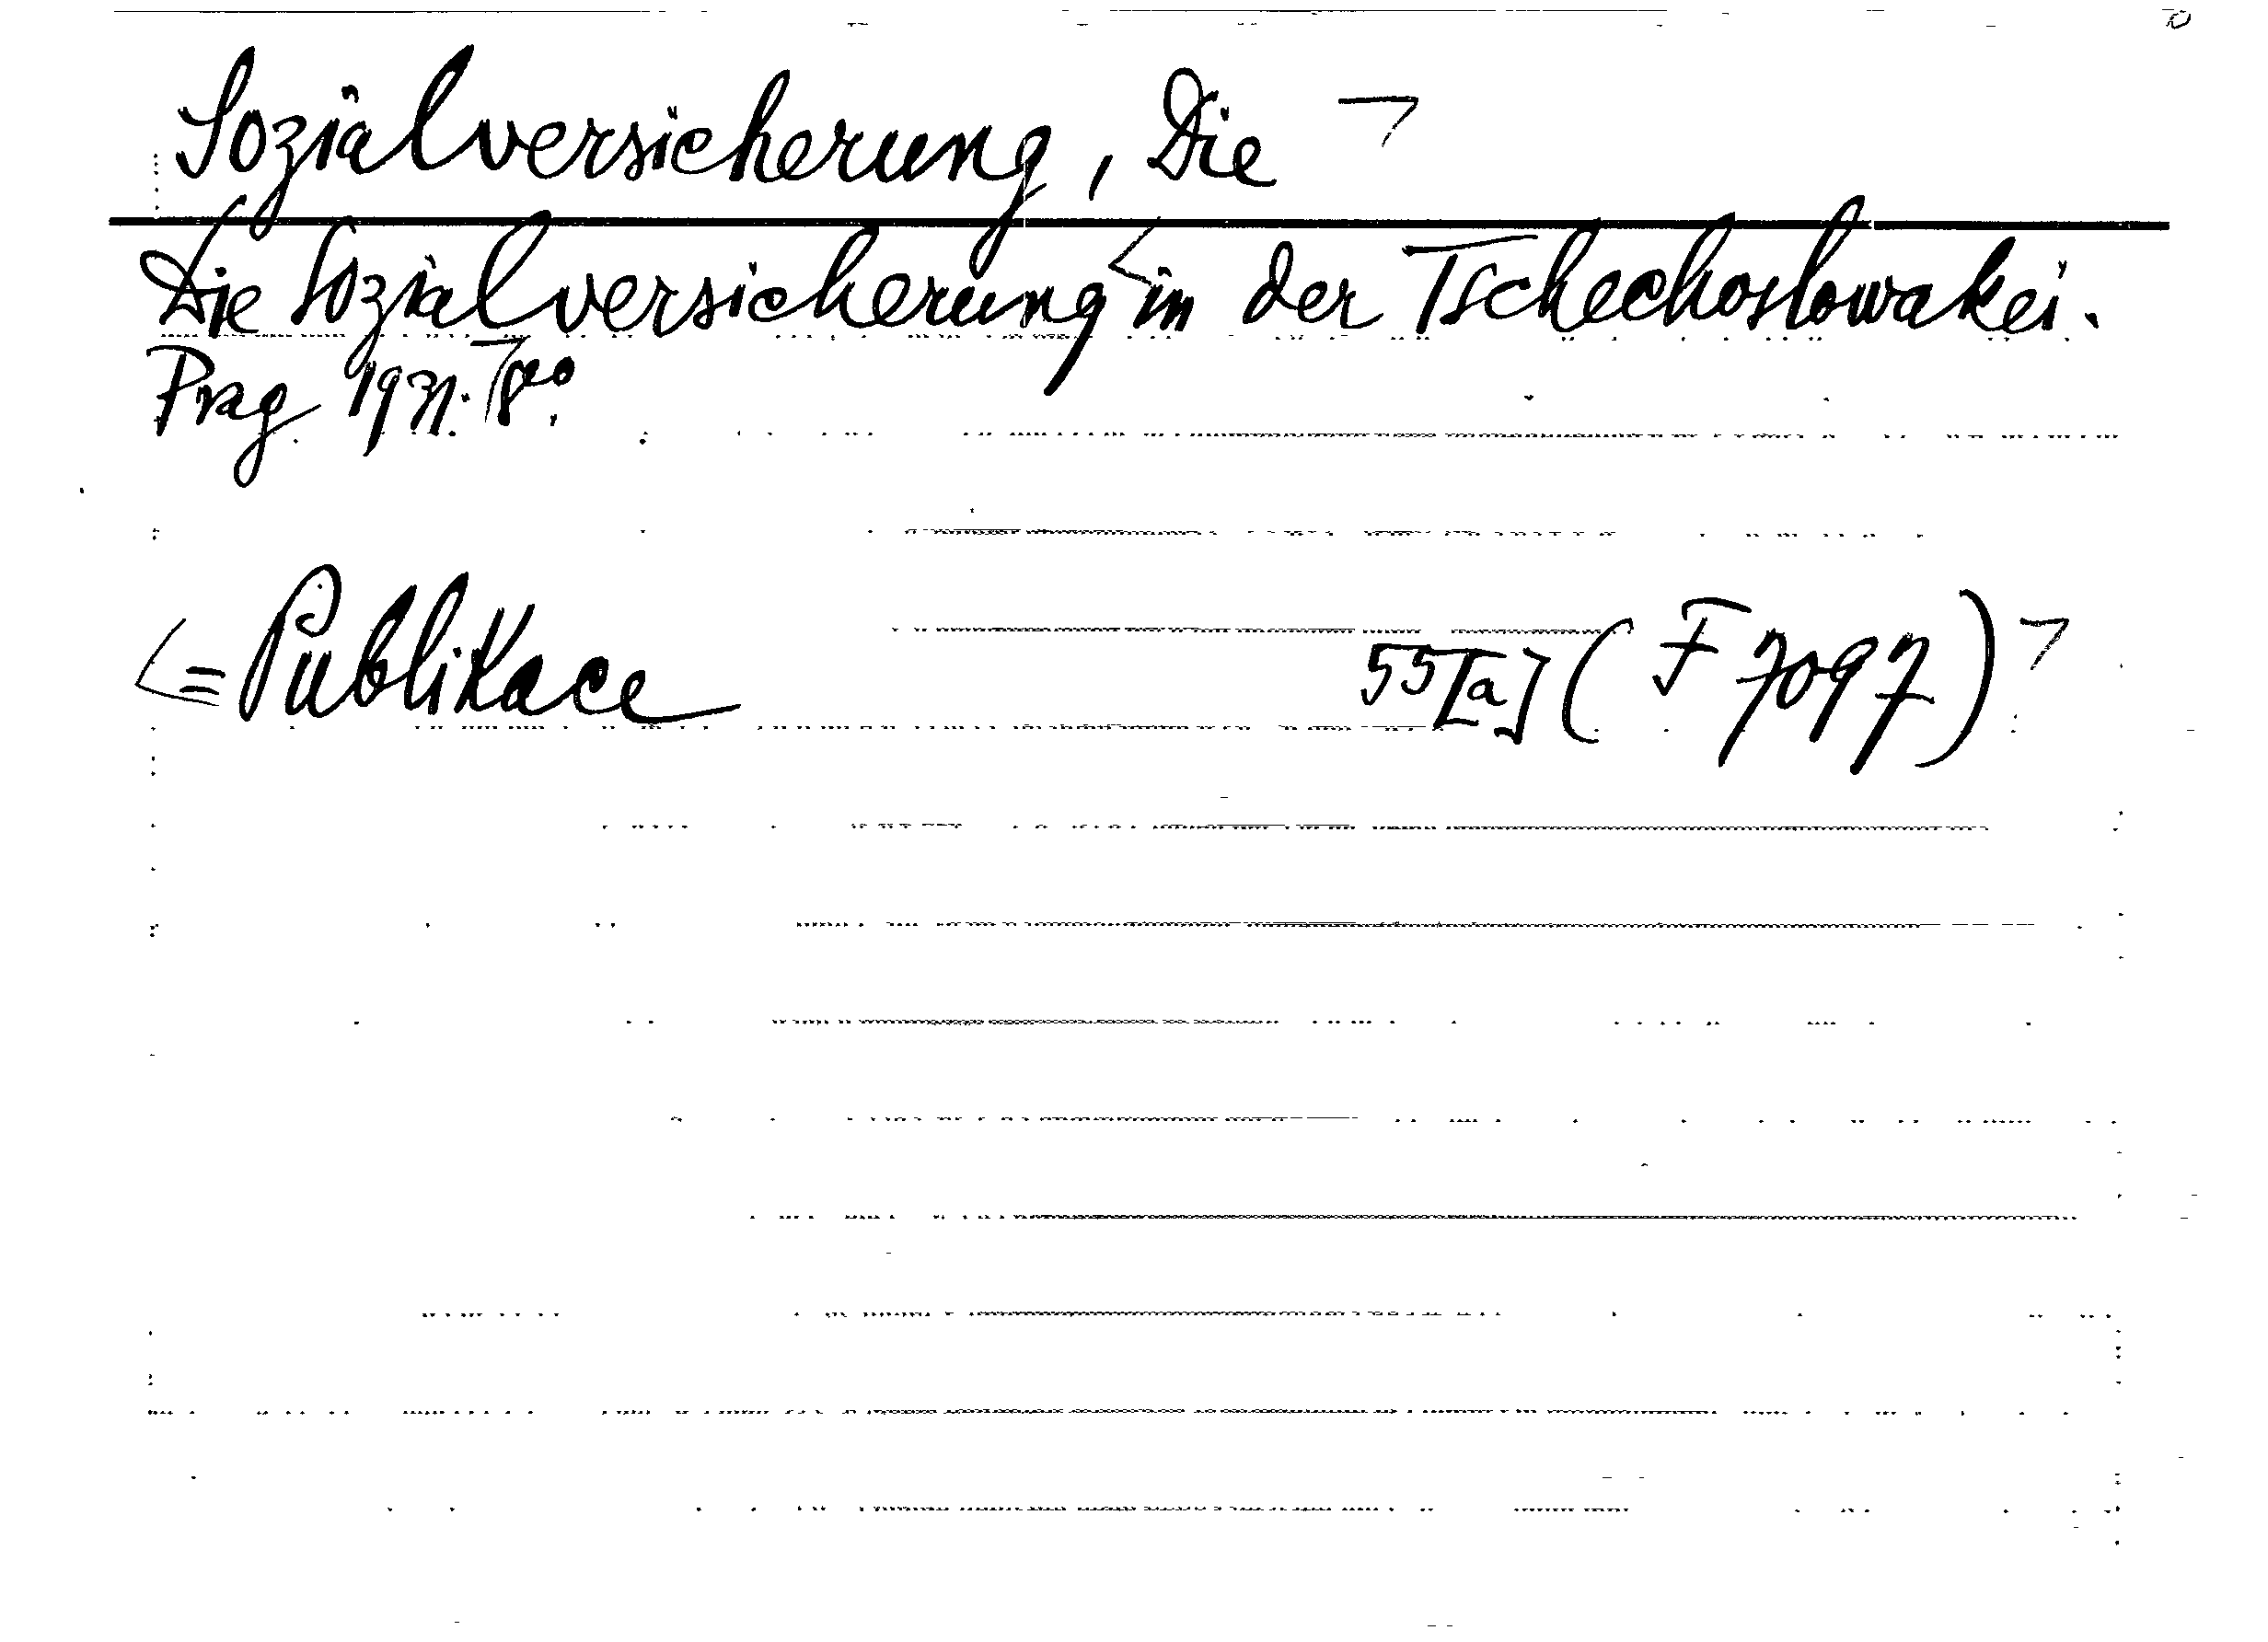 Sozialversicherung, Die ¬
Die Sozialversicherung in der Tschechoslowakei.
Prag 1931. 8°.
= Publikace 55[a] (F 7097)